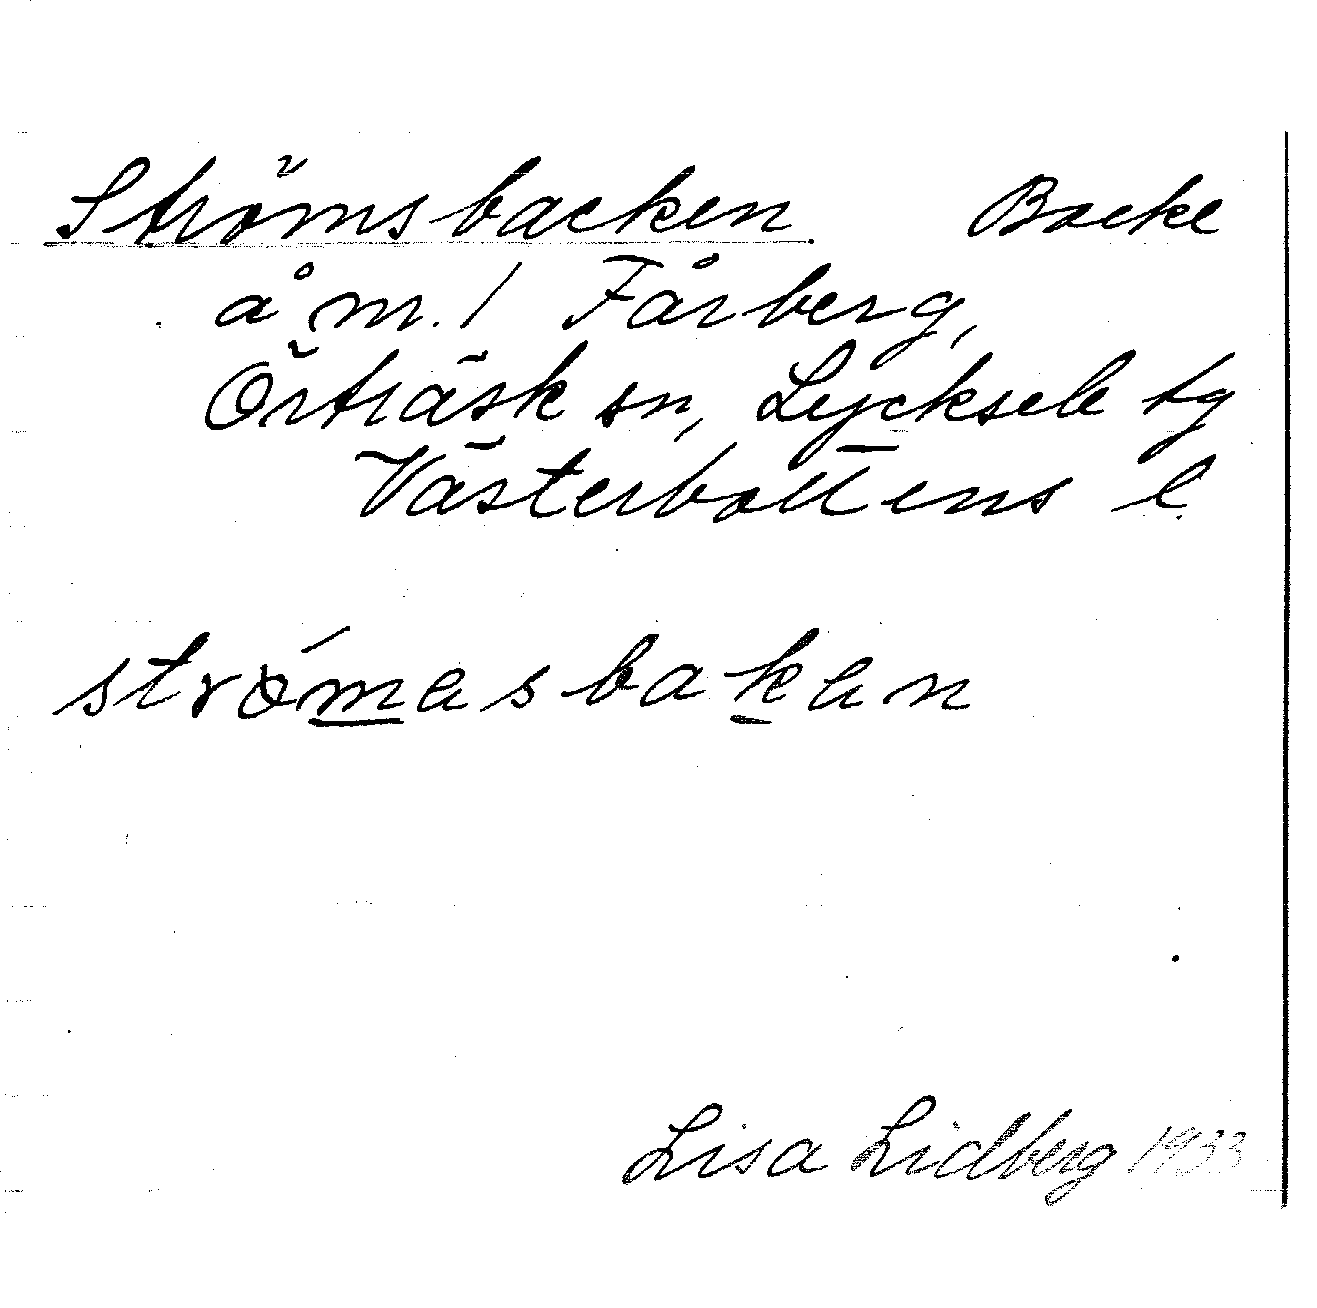 Strömsbacken Backe
å m./ Fårberg,
Örträsk sn, Lycksele tg
Västerbottens l
strø̀masbakan
Lisa Lidberg 1933